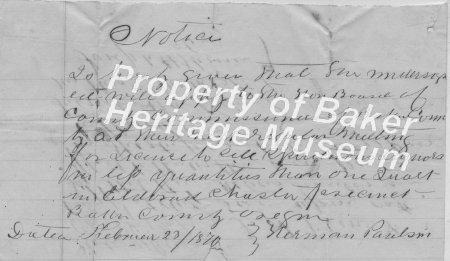 Notice
Is given that the undersign
ed will to the Hon Board of
County Commissioners
at their Regular Meeting
for License to sell Spirituous Liquors
in less quantities than one Quart
in Eldorado Precinct
Baker County Oregon
Dated February 23/1870 Herman Paulson
Property of Baker
Heritage Museum